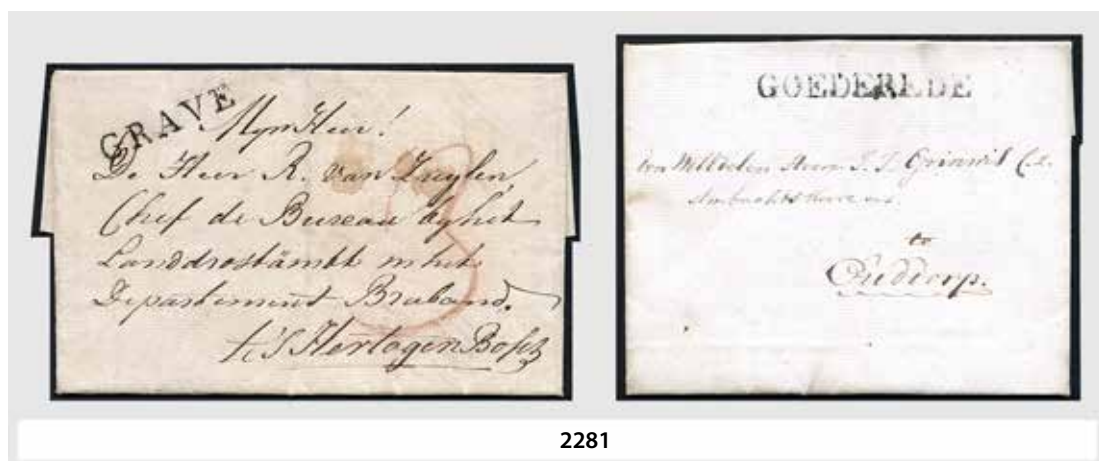 GRAVE
Myn Heer!
De Heer R. van Zuylen,
Chef de Bureau by het
Landdrostämbt in het
Departement Braband.
te 's Hertogen Bosch
3
GOEDEREDE
Heer J. J.
Ambachtsheere
te
Ouddorp.
2281